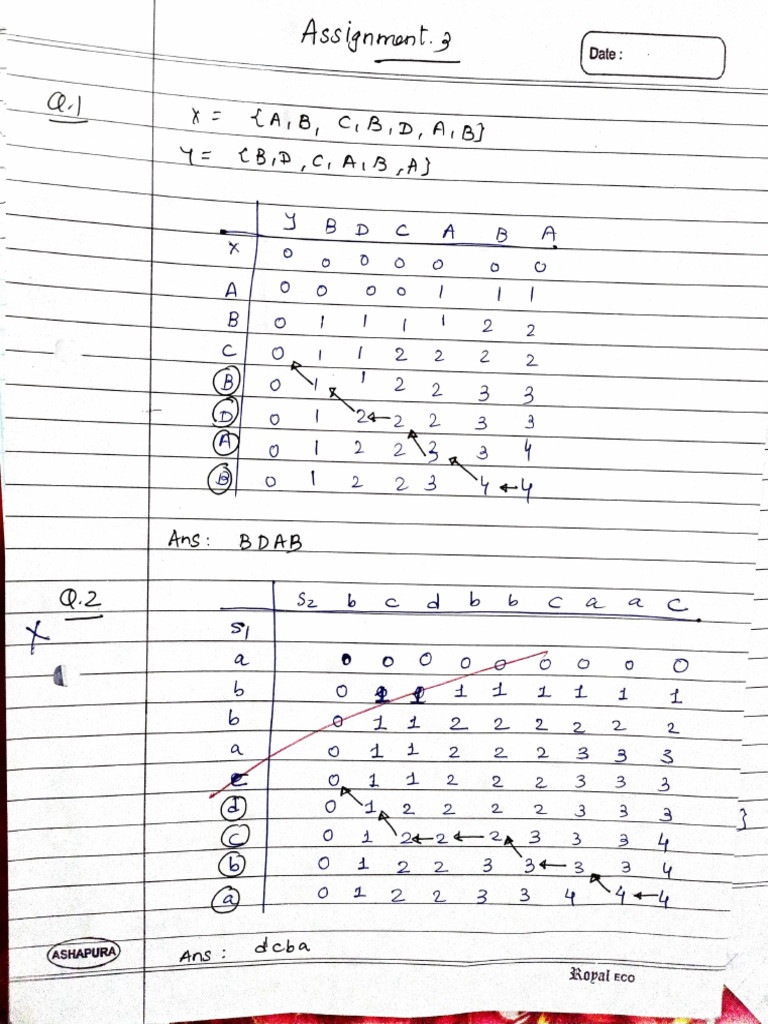 Assignment. 3
Date :
Q.1
X = {A, B, C, B, D, A, B}
Y = {B, D, C, A, B, A}
Y B D C A B A
X 0 0 0 0 0 0 0
A 0 0 0 0 1 1 1
B 0 1 1 1 1 2 2
C 0 1 1 2 2 2 2
B 0 1 1 2 2 3 3
D 0 1 2 ← 2 2 3 3
A 0 1 2 2 3 3 4
B 0 1 2 2 3 4 ← 4
Ans : BDAB
Q.2
X
S2 b c d b b c a a c
S1
a 0 0 0 0 0 0 0 0 0
b 0 1 1 1 1 1 1 1 1
b 0 1 1 2 2 2 2 2 2
a 0 1 1 2 2 2 3 3 3
c 0 1 1 2 2 2 3 3 3
d 0 1 2 2 2 2 3 3 3
}
c 0 1 2 ← 2 ← 2 3 3 3 4
b 0 1 2 2 3 3 ← 3 3 4
a 0 1 2 2 3 3 4 4 ← 4
Ans : dcba
ASHAPURA
Royal ECO